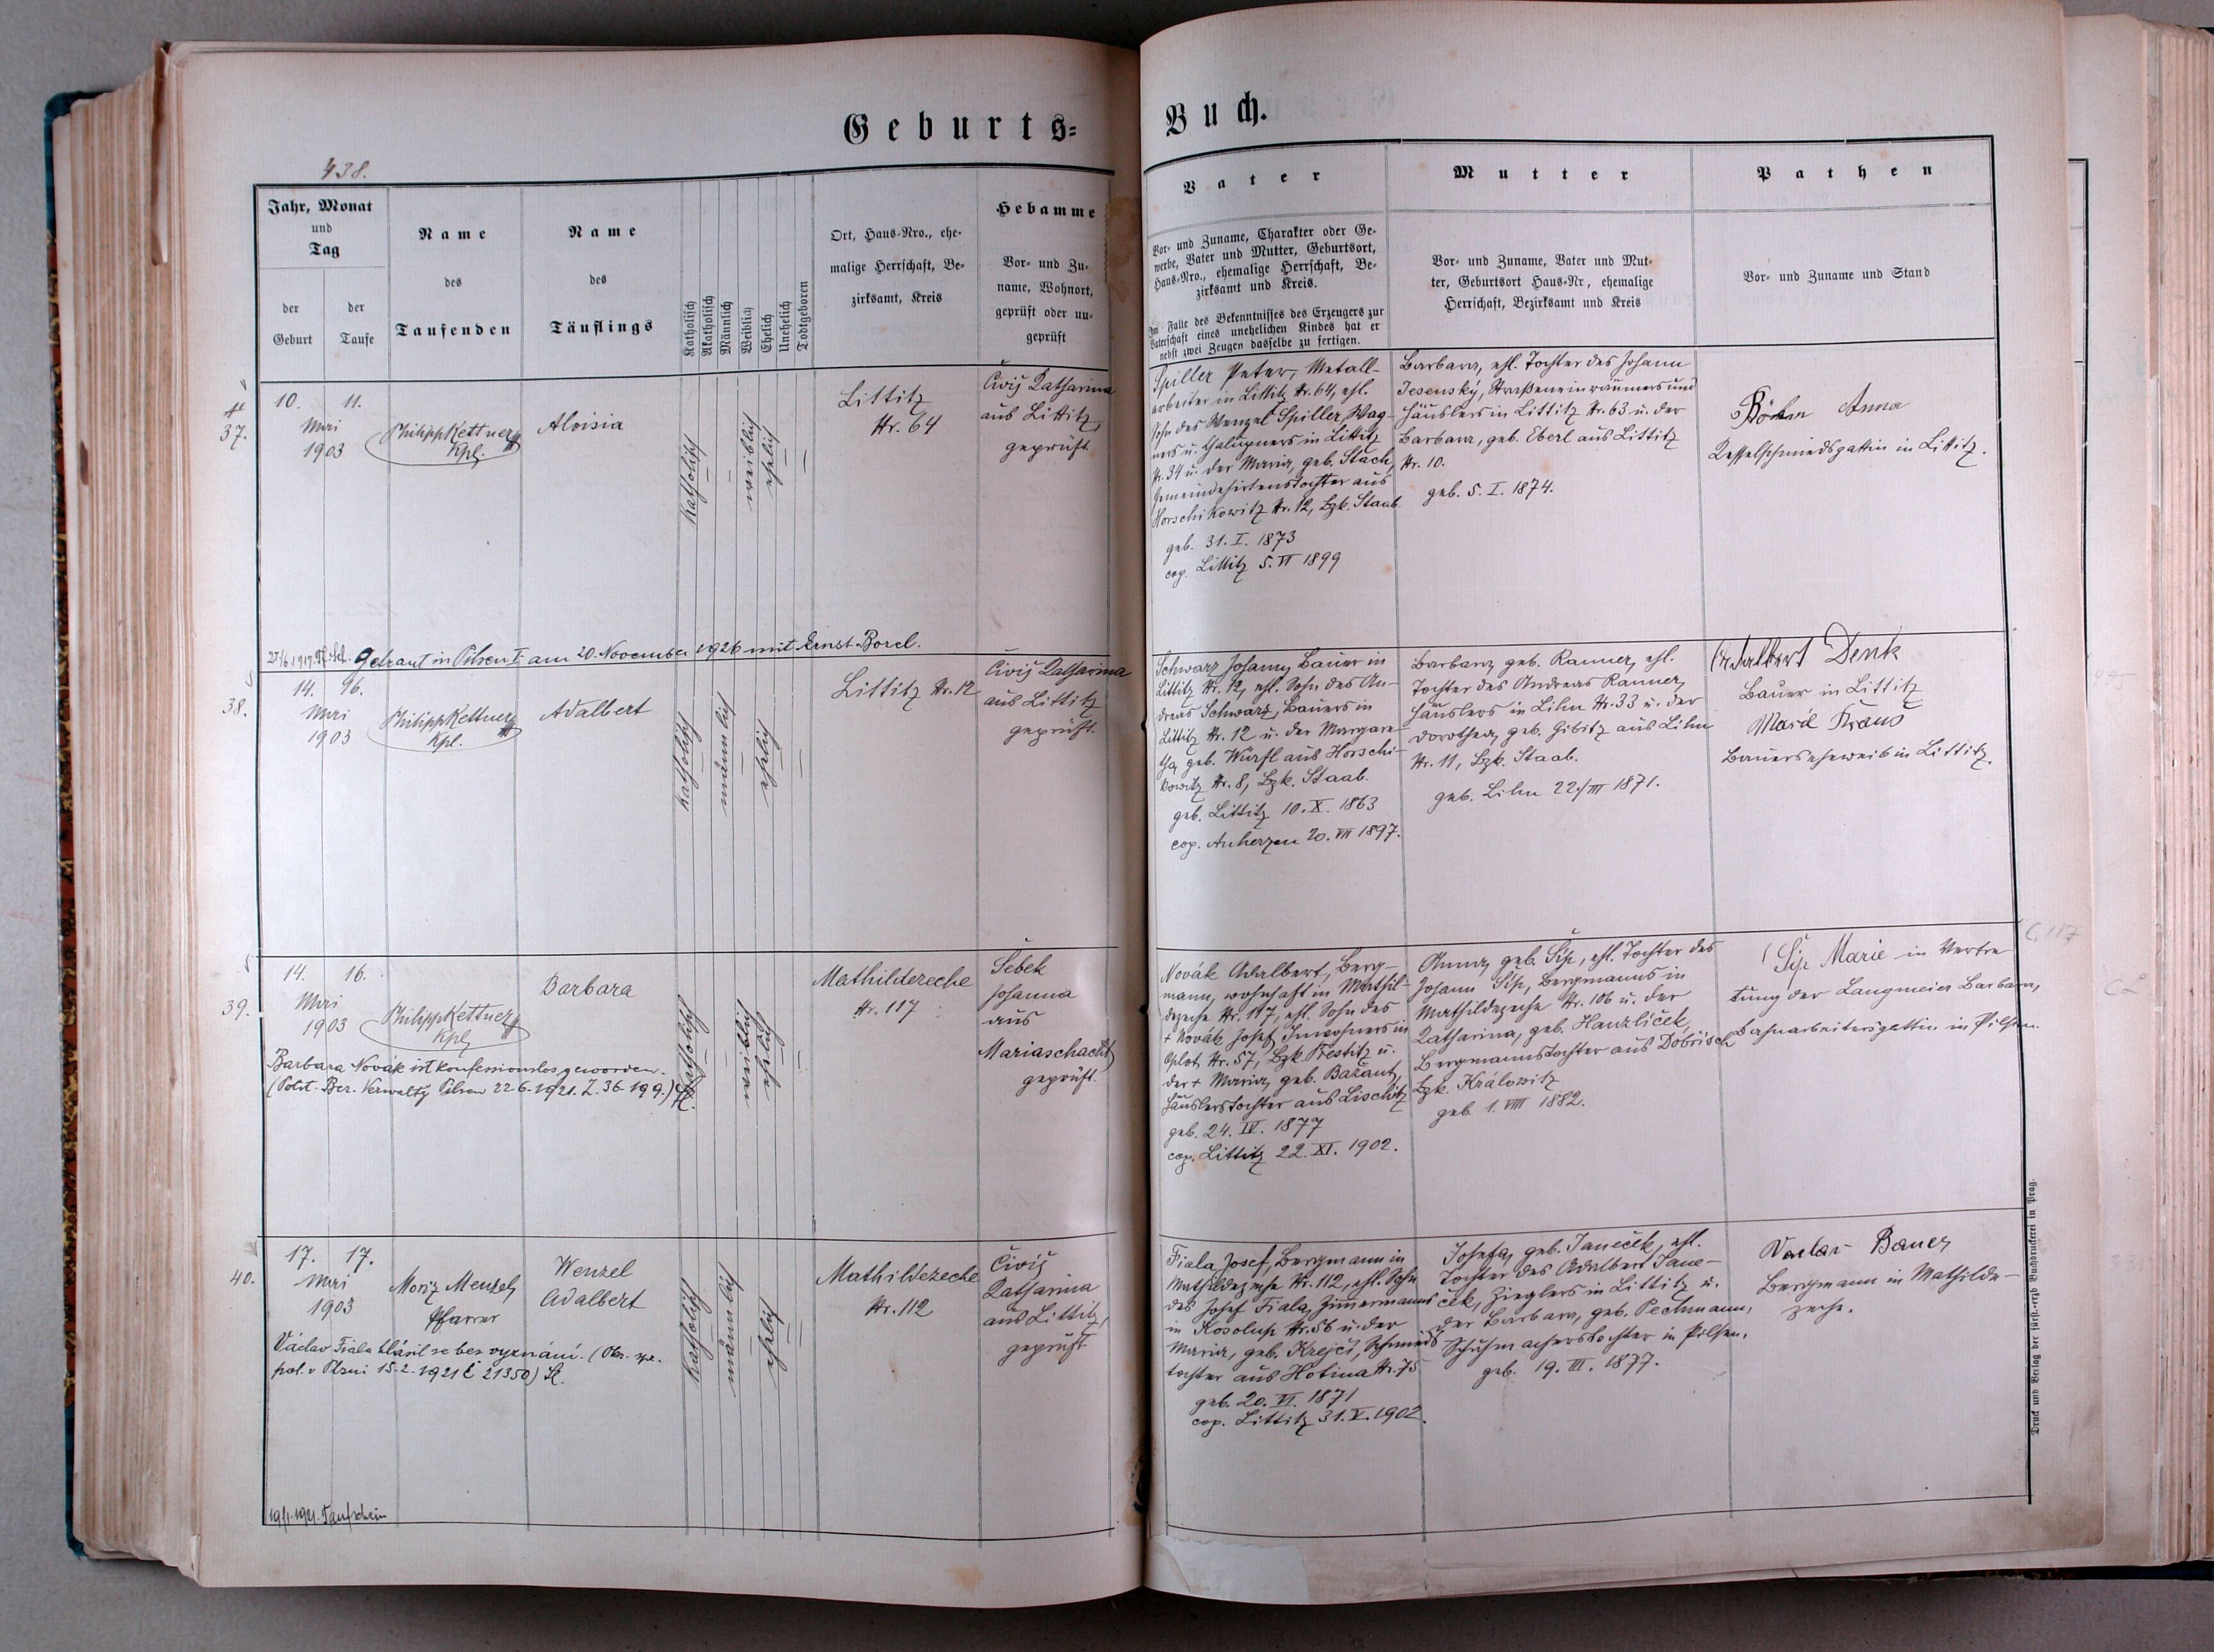 Geburts=
Buch.
438.
Jahr, Monat
und
Tag
der
Geburt
der
Taufe
Name
des
Taufenden
Name
des
Täuflings
Katholisch
Akatholisch
Männlich
Weiblich
Ehelich
Unehelich
Todtgeboren
Ort, Haus-Nro., ehe-
malige Herrschaft, Be-
zirksamt, Kreis
Hebamme
Vor- und Zu-
name, Wohnort,
geprüft oder un-
geprüft
Vater
Vor- und Zuname, Charakter oder Ge-
werbe, Vater und Mutter, Geburtsort,
Haus-Nro., ehemalige Herrschaft, Be-
zirksamt und Kreis.
Im Falle des Bekenntnisses des Erzeugers zur
Vaterschaft eines unehelichen Kindes hat er
nebst zwei Zeugen dasselbe zu fertigen.
Mutter
Vor- und Zuname, Vater und Mut-
ter, Geburtsort Haus-Nr, ehemalige
Herrschaft, Bezirksamt und Kreis
Pathen
Vor- und Zuname und Stand
37.
10. 11.
Mai
1903
Philipp Kettner
Kpl.
Aloisia
katholisch
weiblich
ehelich
Littitz
Nr. 64
Čiviš Katharina
aus Littitz,
geprüft
Spiller Peter, Metall-
arbeiter in Littitz Nr. 64, ehl.
Sohn des Wenzel Spiller, Wag-
ners u. Chalupners in Littitz
Nr. 34 u. der Maria, geb. Stach,
Gemeindehirtenstochter aus
Horschikowitz Nr. 12, Bzk. Staab.
geb. 31. I. 1873
cop. Littitz 5. VI 1899
Barbara, ehl. Tochter des Johann
Jesenský, Straßeneinräumers und
Häuslers in Littitz Nr. 63 u. der
Barbara, geb. Eberl aus Littitz
Nr. 10.
geb. 5. I. 1874.
Böhm Anna
Kesselschmiedsgattin in Littitz.
27/6.1919. Tf. Sch. Getraut in Pilsen I. am 20. November 1926 mit Ernst Borel.
38.
14. 16.
Mai
1903
Philipp Kettner
Kpl.
Adalbert
katholisch
männlich
ehelich
Littitz Nr. 12
Čiviš Katharina
aus Littitz
geprüft.
Schwarz Johann, Bauer in
Littitz Nr. 12, ehl. Sohn des An-
dreas Schwarz, Bauers in
Littitz Nr. 12 u. der Margare-
tha, geb. Würfl aus Horschi-
kowitz Nr. 8, Bzk. Staab.
geb. Littitz 10. X. 1863
cop. Auherzen 20. VII 1897.
Barbara, geb. Ranner, ehl.
Tochter des Andreas Ranner,
Häuslers in Lihn Nr. 33 u. der
Dorothea, geb. Gibitz aus Lihn
Nr. 11, Bzk. Staab.
geb. Lihn 22./III 1871.
Adalbert Denk
Bauer in Littitz
Marie Kraus
Bauerseheweib in Littitz.
39.
14. 16.
Mai
1903
Philipp Kettner
Kpl
Barbara
katholisch
weiblich
ehelich
Mathildezeche
Nr. 117
Šebek
Johanna
aus
Mariaschacht
geprüft.
Barbara Novák ist konfessionslos geworden.
(Polit. Bez. Verwaltg Pilsen 22-6-1921. Z. 36.199.)
Novák Adalbert, Berg-
mann, wohnhaft in Mathil-
dezeche Nr. 117, ehl. Sohn des
+ Novák Josef, Inwohners in
Oplot Nr. 57, Bzk. Přestitz u.
der + Maria, geb. Bažant,
Häuslerstochter aus Lischitz
geb. 24. IV. 1877
cop. Littitz 22. XI. 1902.
Anna, geb. Šíp, ehl. Tochter des
Johann Šíp, Bergmanns in
Mathildezeche Nr. 106 u. der
Katharina, geb. Hanzlíček,
Bergmannstochter aus Dobřisch
Bzk. Královitz
geb. 1. VIII 1882.
Šíp Marie in Vertre
tung der Langmeier Barbara,
Bahnarbeitersgattin in Pilsen.
40.
17. 17.
Mai
1903
Moriz Menzel,
Pfarrer
Wenzel
Adalbert
katholisch
männlich
ehelich
Mathildezeche
Nr. 112
Čiviš
Katharina
aus Littitz,
geprüft
Václav Fiala hlásil se bez vyznání. (Okr. spr.
pol. v Plzni 15-2-1921 č 21350)
Fiala Josef, Bergmann in
Mathildezeche Nr. 112, ehl. Sohn
des Josef Fiala, Zimmermanns
in Kosolup Nr. 56 u. der
Maria, geb. Krejčí, Schmieds
tochter aus Hotina Nr. 75
geb. 20. VI. 1871
cop. Littitz 31. V. 1902.
Josefa, geb. Janeček, ehl.
Tochter des Adalbert Jane-
ček, Zieglers in Littitz u.
der Barbara, geb. Pechmann,
Schuhmacherstochter in Pilsen.
geb. 19. III. 1877.
Bauer
Bergmann in Mathilde-
zeche.
19/1.1921. Taufschein
Druck und Verlag der fürst.-erzb Buchdruckerei in Prag.